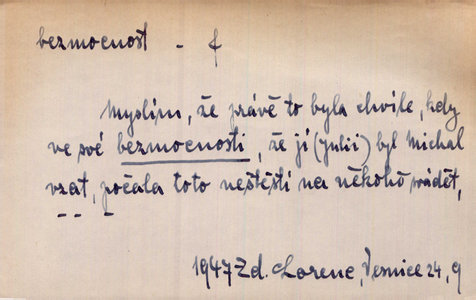 bezmocnost - f
Myslím, že právě to byla chvíle, kdy
ve své bezmocnosti, že jí (Julii) byl Michal
vzat, počala toto neštěstí na někoho svádět,
1947 Zd. Lorenc, Vesnice 24, 9